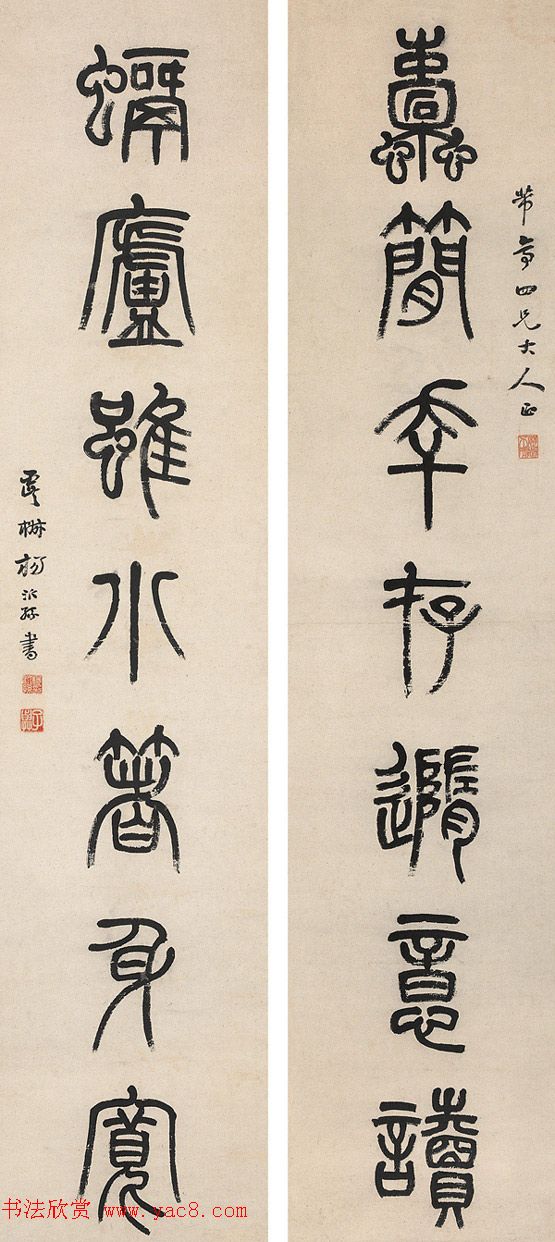 蠹簡幸存隨意讀
芾亭四兄大人正
蝸廬雖小箸身寬
虞楊沂孫書
书法欣赏 www.yac8.com